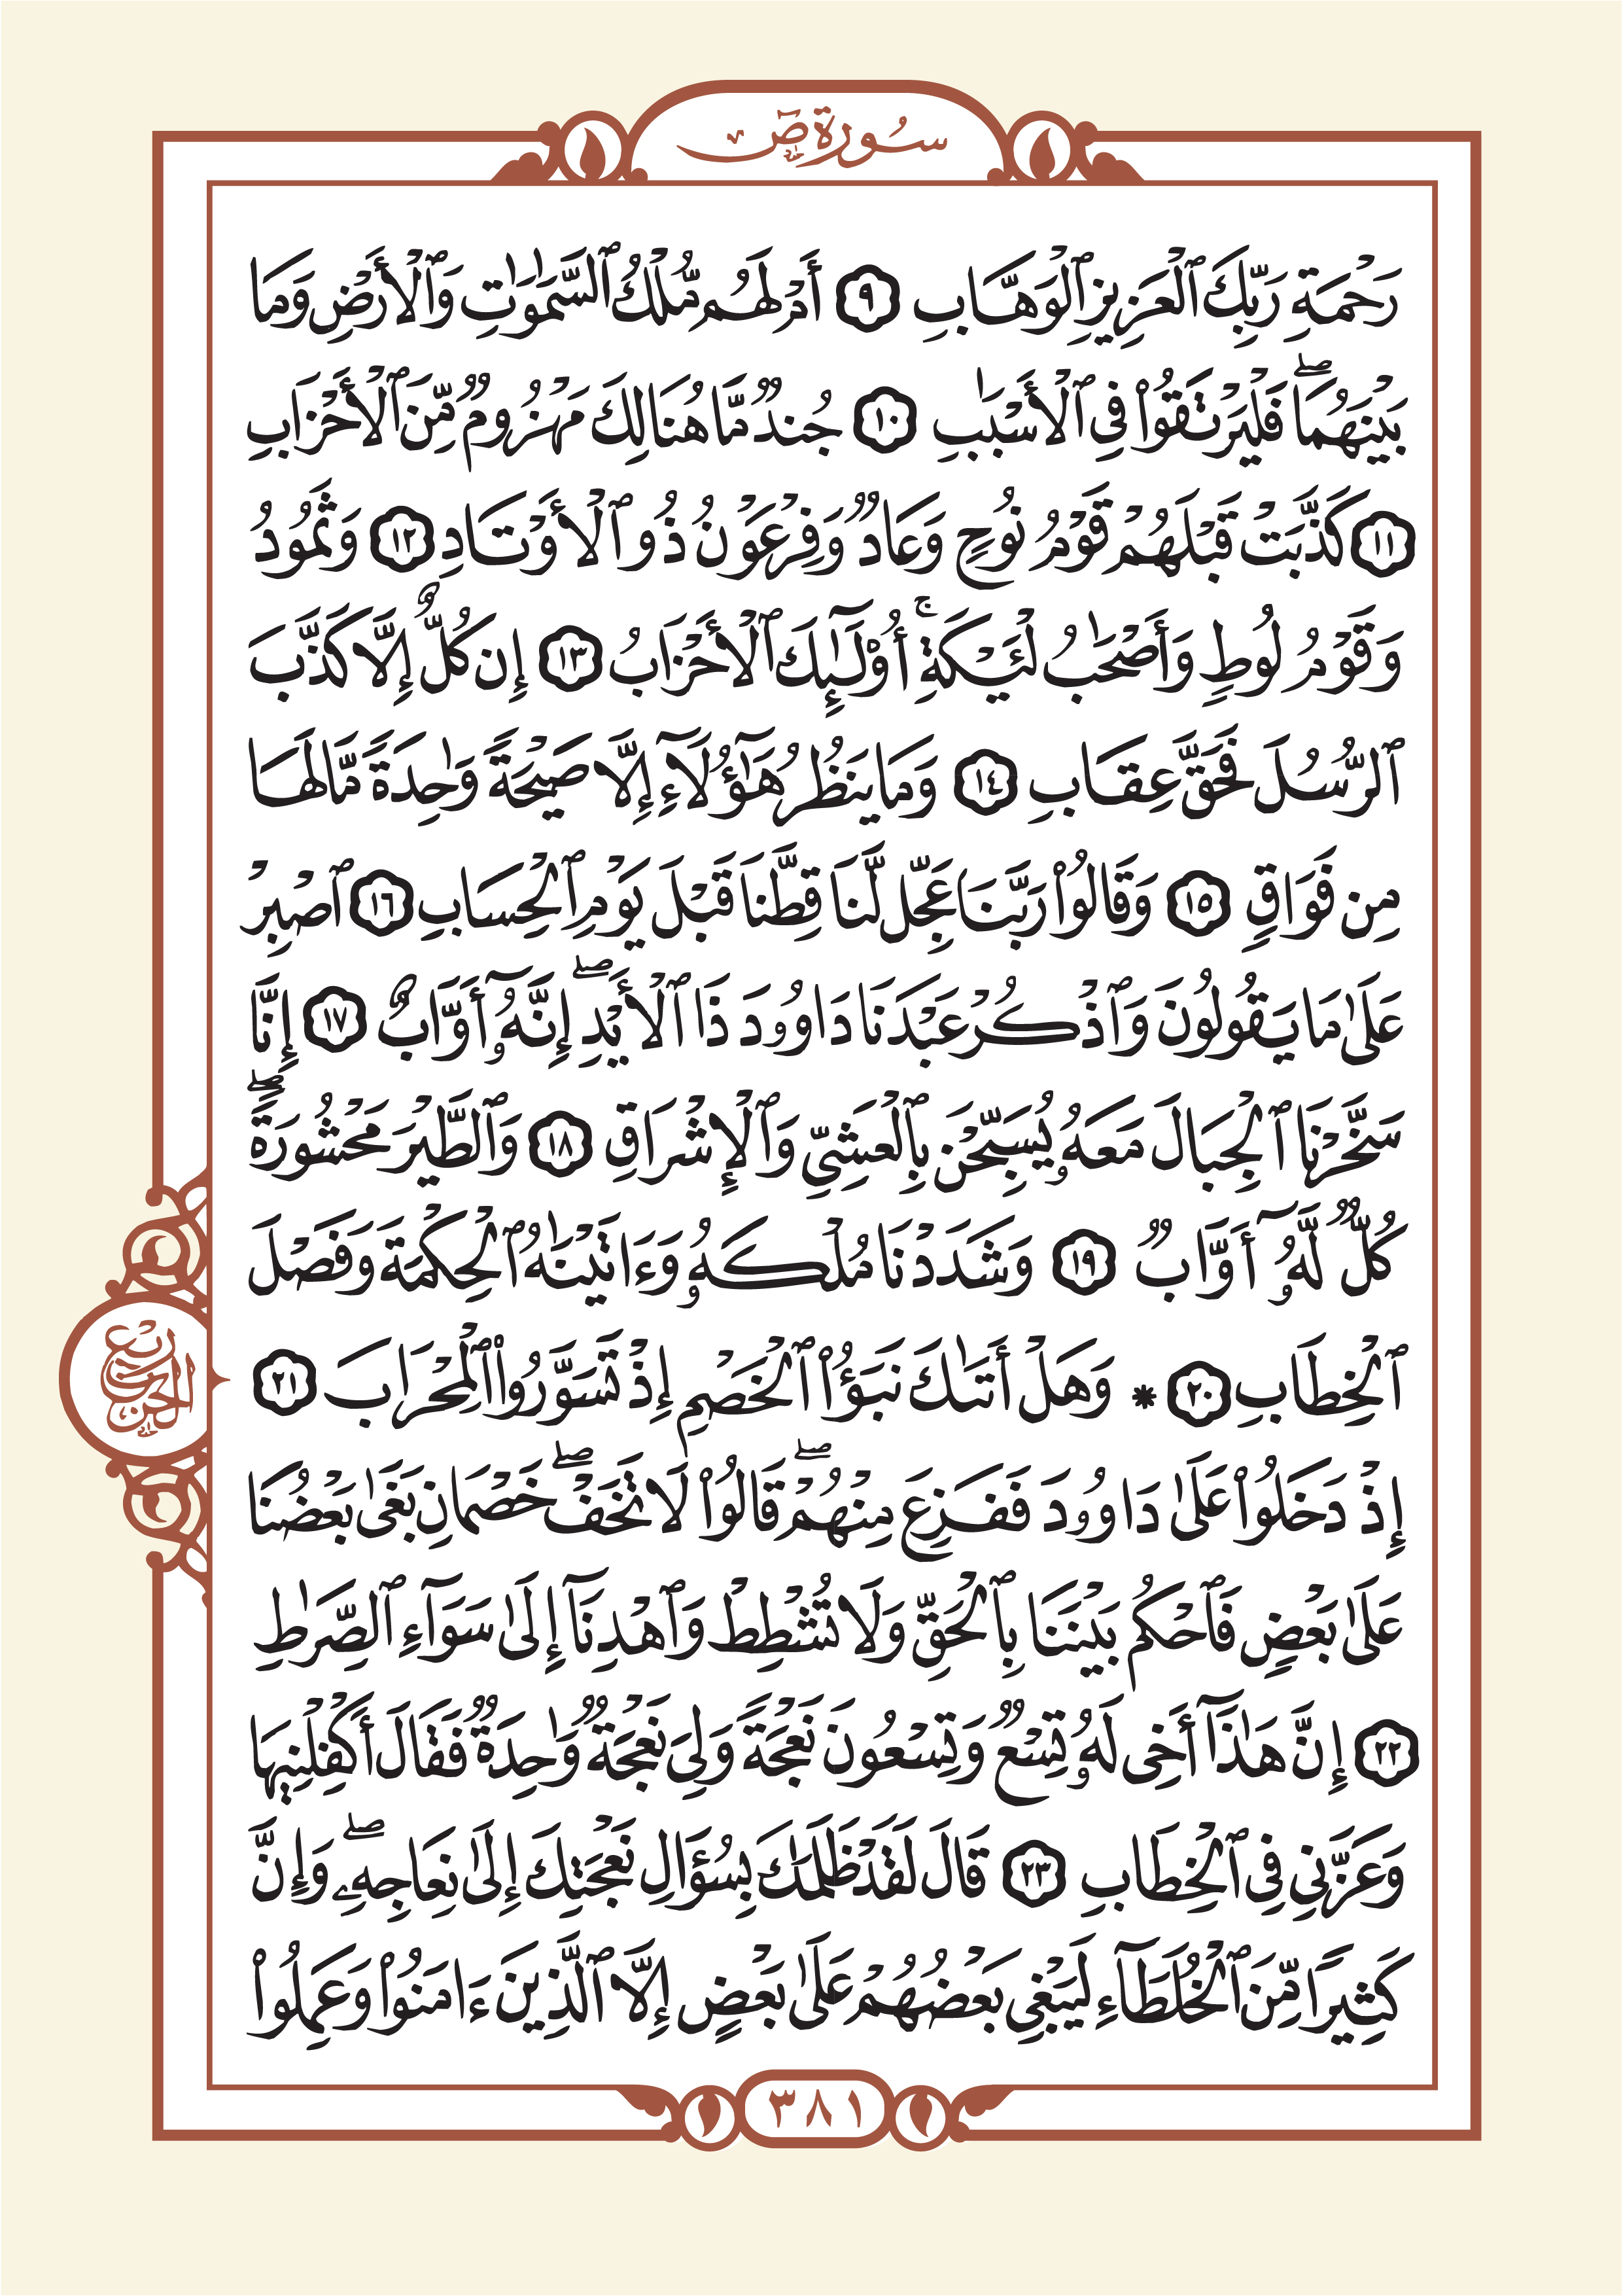 سُورَةُ صٓ
رَحْمَةِ رَبِّكَ ٱلْعَزِيزِ ٱلْوَهَّابِ ٩ أَمْ لَهُم مُّلْكُ ٱلسَّمَٰوَٰتِ وَٱلْأَرْضِ وَمَا
بَيْنَهُمَاۖ فَلْيَرْتَقُوا۟ فِى ٱلْأَسْبَٰبِ ١٠ جُندٌ مَّا هُنَالِكَ مَهْزُومٌ مِّنَ ٱلْأَحْزَابِ
١١ كَذَّبَتْ قَبْلَهُمْ قَوْمُ نُوحٍ وَعَادٌ وَفِرْعَوْنُ ذُو ٱلْأَوْتَادِ ١٢ وَثَمُودُ
وَقَوْمُ لُوطٍ وَأَصْحَٰبُ لْـَٔيْكَةِۚ أُو۟لَٰٓئِكَ ٱلْأَحْزَابُ ١٣ إِن كُلٌّ إِلَّا كَذَّبَ
ٱلرُّسُلَ فَحَقَّ عِقَابِ ١٤ وَمَا يَنظُرُ هَٰٓؤُلَآءِ إِلَّا صَيْحَةً وَٰحِدَةً مَّا لَهَا
مِن فَوَاقٍ ١٥ وَقَالُوا۟ رَبَّنَا عَجِّل لَّنَا قِطَّنَا قَبْلَ يَوْمِ ٱلْحِسَابِ ١٦ ٱصْبِرْ
عَلَىٰ مَا يَقُولُونَ وَٱذْكُرْ عَبْدَنَا دَاوُۥدَ ذَا ٱلْأَيْدِۖ إِنَّهُۥٓ أَوَّابٌ ١٧ إِنَّا
سَخَّرْنَا ٱلْجِبَالَ مَعَهُۥ يُسَبِّحْنَ بِٱلْعَشِىِّ وَٱلْإِشْرَاقِ ١٨ وَٱلطَّيْرَ مَحْشُورَةًۖ
كُلٌّ لَّهُۥٓ أَوَّابٌ ١٩ وَشَدَدْنَا مُلْكَهُۥ وَءَاتَيْنَٰهُ ٱلْحِكْمَةَ وَفَصْلَ
ٱلْخِطَابِ ٢٠ * وَهَلْ أَتَىٰكَ نَبَؤُا۟ ٱلْخَصْمِ إِذْ تَسَوَّرُوا۟ ٱلْمِحْرَابَ ٢١
إِذْ دَخَلُوا۟ عَلَىٰ دَاوُۥدَ فَفَزِعَ مِنْهُمْۖ قَالُوا۟ لَا تَخَفْۖ خَصْمَانِ بَغَىٰ بَعْضُنَا
عَلَىٰ بَعْضٍ فَٱحْكُم بَيْنَنَا بِٱلْحَقِّ وَلَا تُشْطِطْ وَٱهْدِنَآ إِلَىٰ سَوَآءِ ٱلصِّرَٰطِ
٢٢ إِنَّ هَٰذَآ أَخِى لَهُۥ تِسْعٌ وَتِسْعُونَ نَعْجَةً وَلِىَ نَعْجَةٌ وَٰحِدَةٌ فَقَالَ أَكْفِلْنِيهَا
وَعَزَّنِى فِى ٱلْخِطَابِ ٢٣ قَالَ لَقَدْ ظَلَمَكَ بِسُؤَالِ نَعْجَتِكَ إِلَىٰ نِعَاجِهِۦۖ وَإِنَّ
كَثِيرًا مِّنَ ٱلْخُلَطَآءِ لَيَبْغِى بَعْضُهُمْ عَلَىٰ بَعْضٍ إِلَّا ٱلَّذِينَ ءَامَنُوا۟ وَعَمِلُوا۟
ربع الحزب
٣٨١